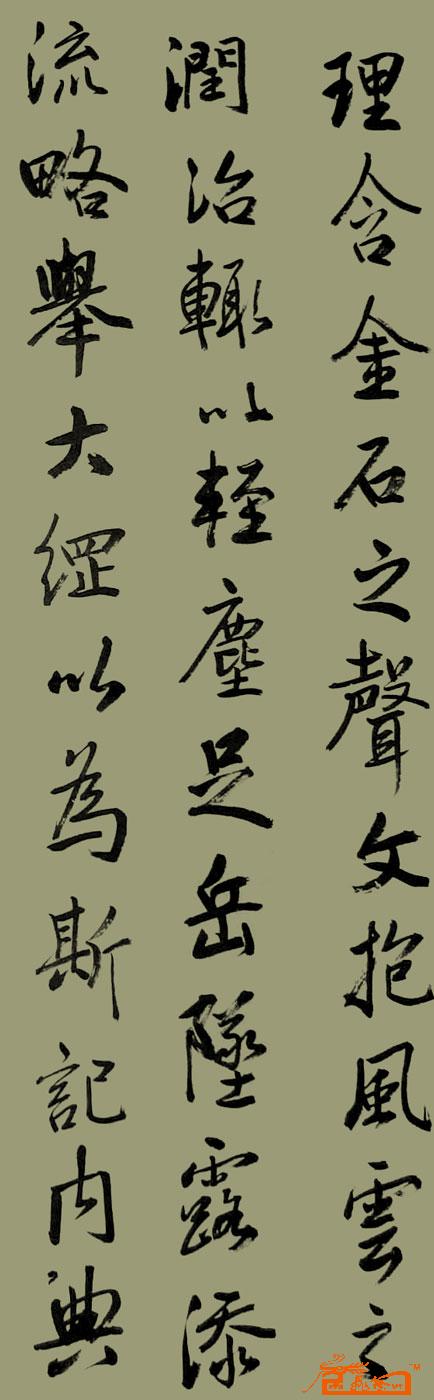 理含金石之聲文抱風雲之
潤治輙以輕塵足岳墜露添
流略舉大綱以為斯記内典